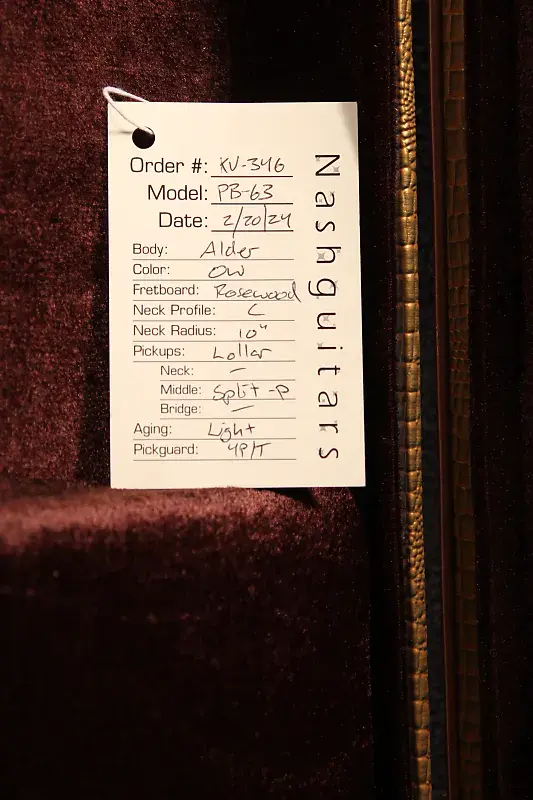 Order #: KV-346
Model: PB-63
Date: 2/20/24
Body: Alder
Color: OW
Fretboard: Rosewood
Neck Profile: C
Neck Radius: 10"
Pickups: Lollar
Neck: —
Middle: Split-P
Bridge: —
Aging: Light
Pickguard: 4P/T
Nashguitars